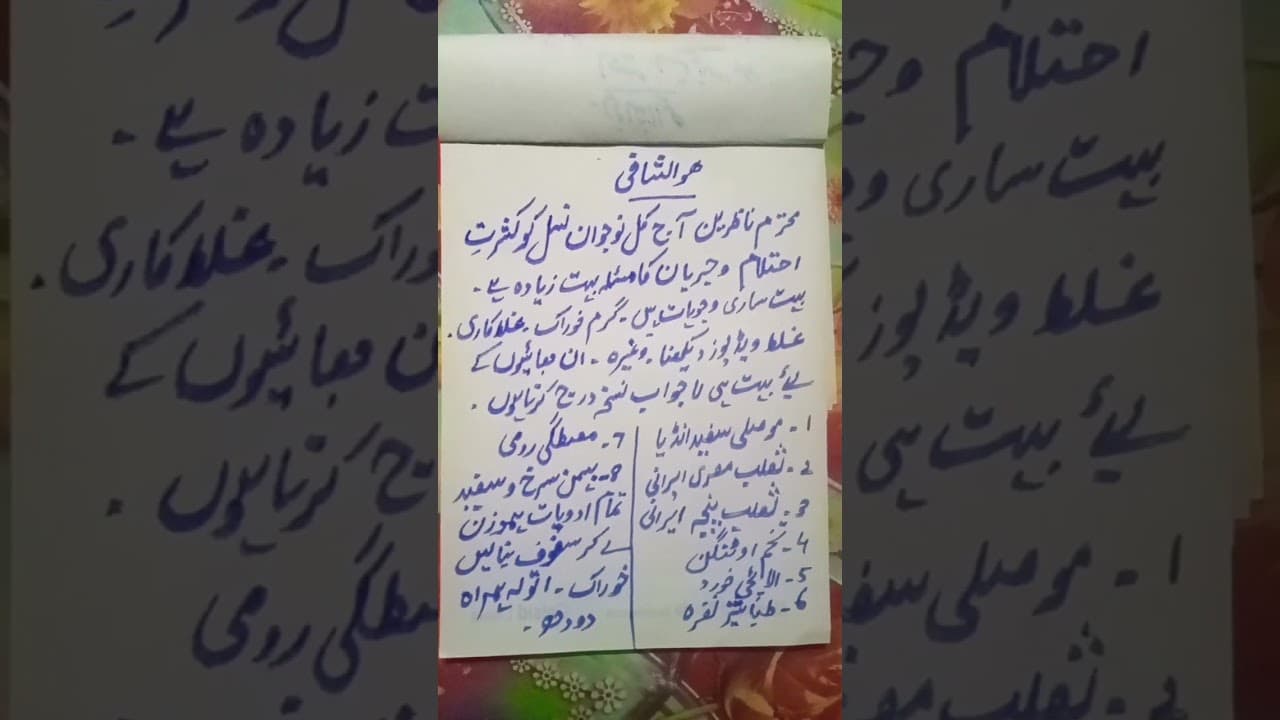 ھوالشافی
محترم ناظرین آج کل نوجوان نسل کو کثرتِ
احتلام وجریان کا مسئلہ بہت زیادہ ہے۔
بہت ساری وجوہات ہیں۔ گرم خوراک۔ غلط کاری۔
غلط ویڈیوز دیکھنا۔ وغیرہ۔ ان بھائیوں کے
لیئے بہت ہی لاجواب نسخہ درج کرتا ہوں۔
1۔ موصلی سفید انڈیا
2۔ ثعلب مصری ایرانی
3۔ ثعلب پنجہ ایرانی
4۔ تخم اوٹنگن
5۔ الائچی خورد
6۔ طباشیر نقرہ
7۔ مصطگی رومی
8۔ بہمن سرخ و سفید
تمام ادویات ہموزن
لے کر سفوف بنالیں
خوراک۔ 1 تولہ ہمراہ
دودھ۔